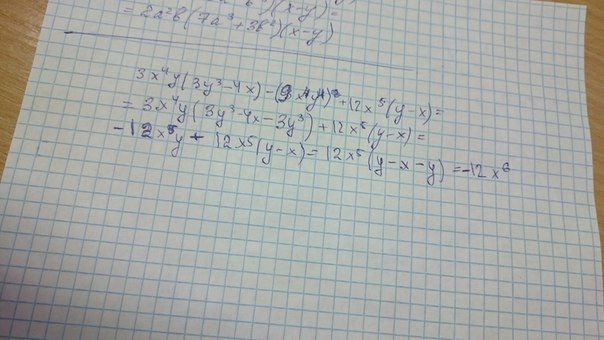 = 2a²b(7a³+3b²)(x-y)
3x⁴y(3y³-4x)-(9x⁴y⁴)+12x⁵(y-x)=
=3x⁴y(3y³-4x-3y³)+12x⁵(y-x)=
-12x⁵y+12x⁵(y-x)=12x⁵(y-x-y)=-12x⁶